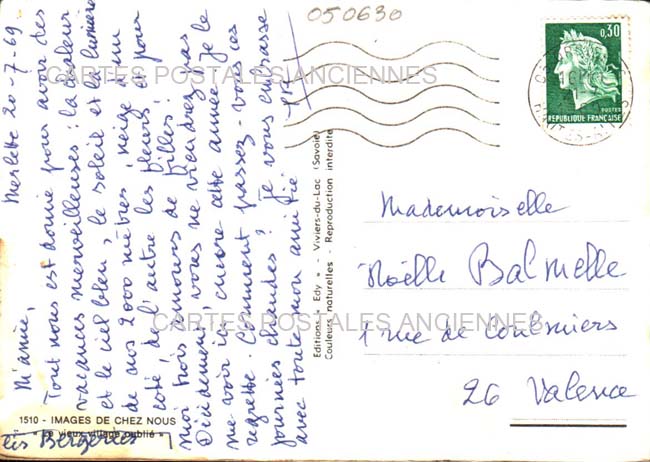 Merlette 20-7-69
M'amie,
Tout nous est donné pour avoir des
vacances merveilleuses : la chaleur
et le ciel bleu, le soleil et la lumière
de nos 2000 mètres, neige d'un
côté, de l'autre les fleurs et pour
moi trois amours de filles !
Décidément, vous ne viendrez pas
me voir ici encore cette année je le
regrette. Comment passez-vous ces
journées chaudes ? Je vous embrasse
avec toute mon amitié
Les Bergeries
1510 - IMAGES DE CHEZ NOUS
« Le vieux village oublié »
Editions « Edy » - Viviers-du-Lac (Savoie)
Couleurs naturelles - Reproduction interdite
050630
0,30
POSTES
REPUBLIQUE FRANÇAISE
HAUTES-ALPES
Mademoiselle
Noëlle Balmelle
1 rue de Coulmiers
26 Valence
CARTES POSTALES ANCIENNES
CARTES POSTALES ANCIENNES